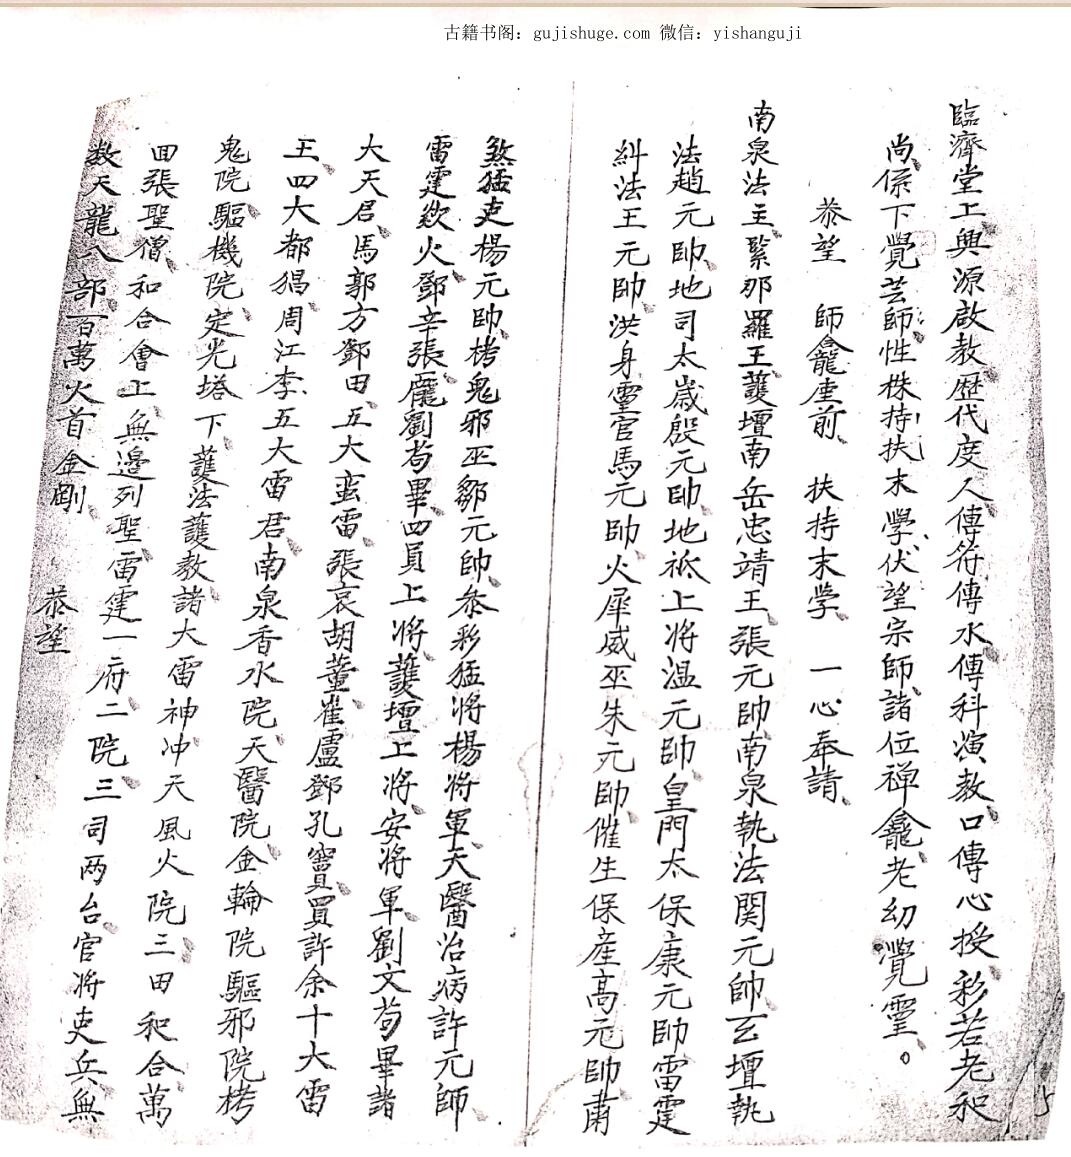 古籍书阁: gujishuge.com 微信: yishanguji
臨濟堂上興源啟教歷代度人傳符傳水傳科演教口傳心授彩若老和
尚係下覺芸師性株持扶末學伏望宗師諸位禅龕老幼覺靈。
恭望 師龕座前 扶持末學 一心奉請
南泉法主緊那羅王護壇南岳忠靖王張元帥南泉執法関元帥玄壇執
法趙元帥地司太歲殷元帥地祇上将温元帥皇門太保康元帥雷霆
糾法王元帥洪身霻官馬元帥火犀威巫朱元帥催生保産高元帥甫
煞猛吏楊元帥栲鬼邪巫鄒元帥叅彩猛将楊将軍天醫治病許元師
雷霆欻火鄧辛張龐劉苟畢四員上将護壇上将安将軍劉文苟畢諸
大天君馬郭方鄧田五大蛮雷張哀胡董崔盧鄧孔竇買許余十大雷
王四大都猖周江李五大雷君南泉香水院天醫院金輪院驅邪院栲
鬼院驅機院定光塔下護法護教諸大雷神冲天風火院三田和合萬
田張聖僧和合會上無邊列聖雷霆一府二院三司两台官将吏兵無
数天龍八部百萬火首金剛 恭望